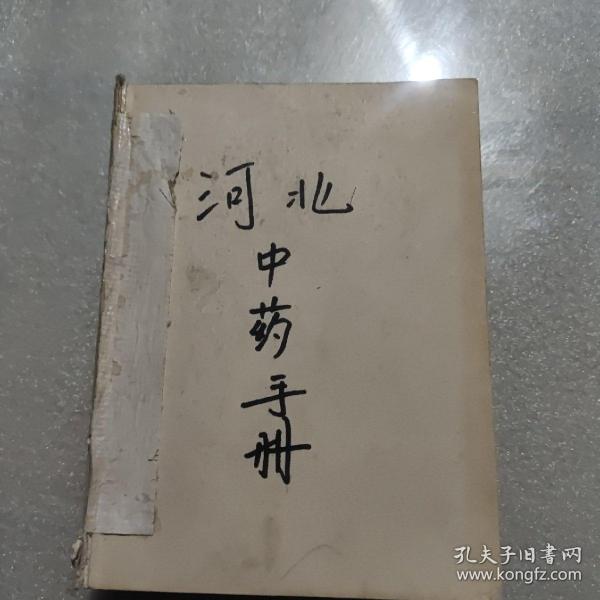 河北
中药手册
孔夫子旧書网
www.kongfz.com